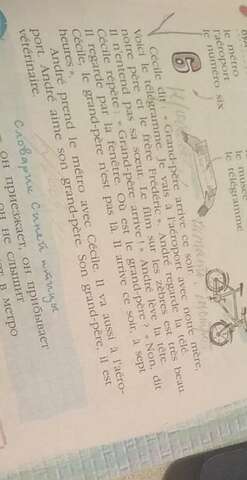 le métro
l'aéroport
le numéro six
le musée
le télégramme
6
Cécile dit : « Grand-père arrive ce soir.
Voici le télégramme. Je vais à l'aéroport avec notre mère,
notre père et le frère Frédéric. » André regarde la télé.
Il n'entend pas sa sœur. Le film sur les zèbres est très beau.
Cécile répète : « Grand-père arrive ! » André lève la tête.
Il regarde par la fenêtre. « Où est le grand-père ? » « Non, dit
Cécile, le grand-père n'est pas là. Il arrive ce soir, à sept
heures ».
André prend le métro avec Cécile. Il va aussi à l'aéro-
port. André aime son grand-père. Son grand-père, il est
vétérinaire.
Словарик Синей птицы
он приезжает, он прибывает
он не слышит
в метро